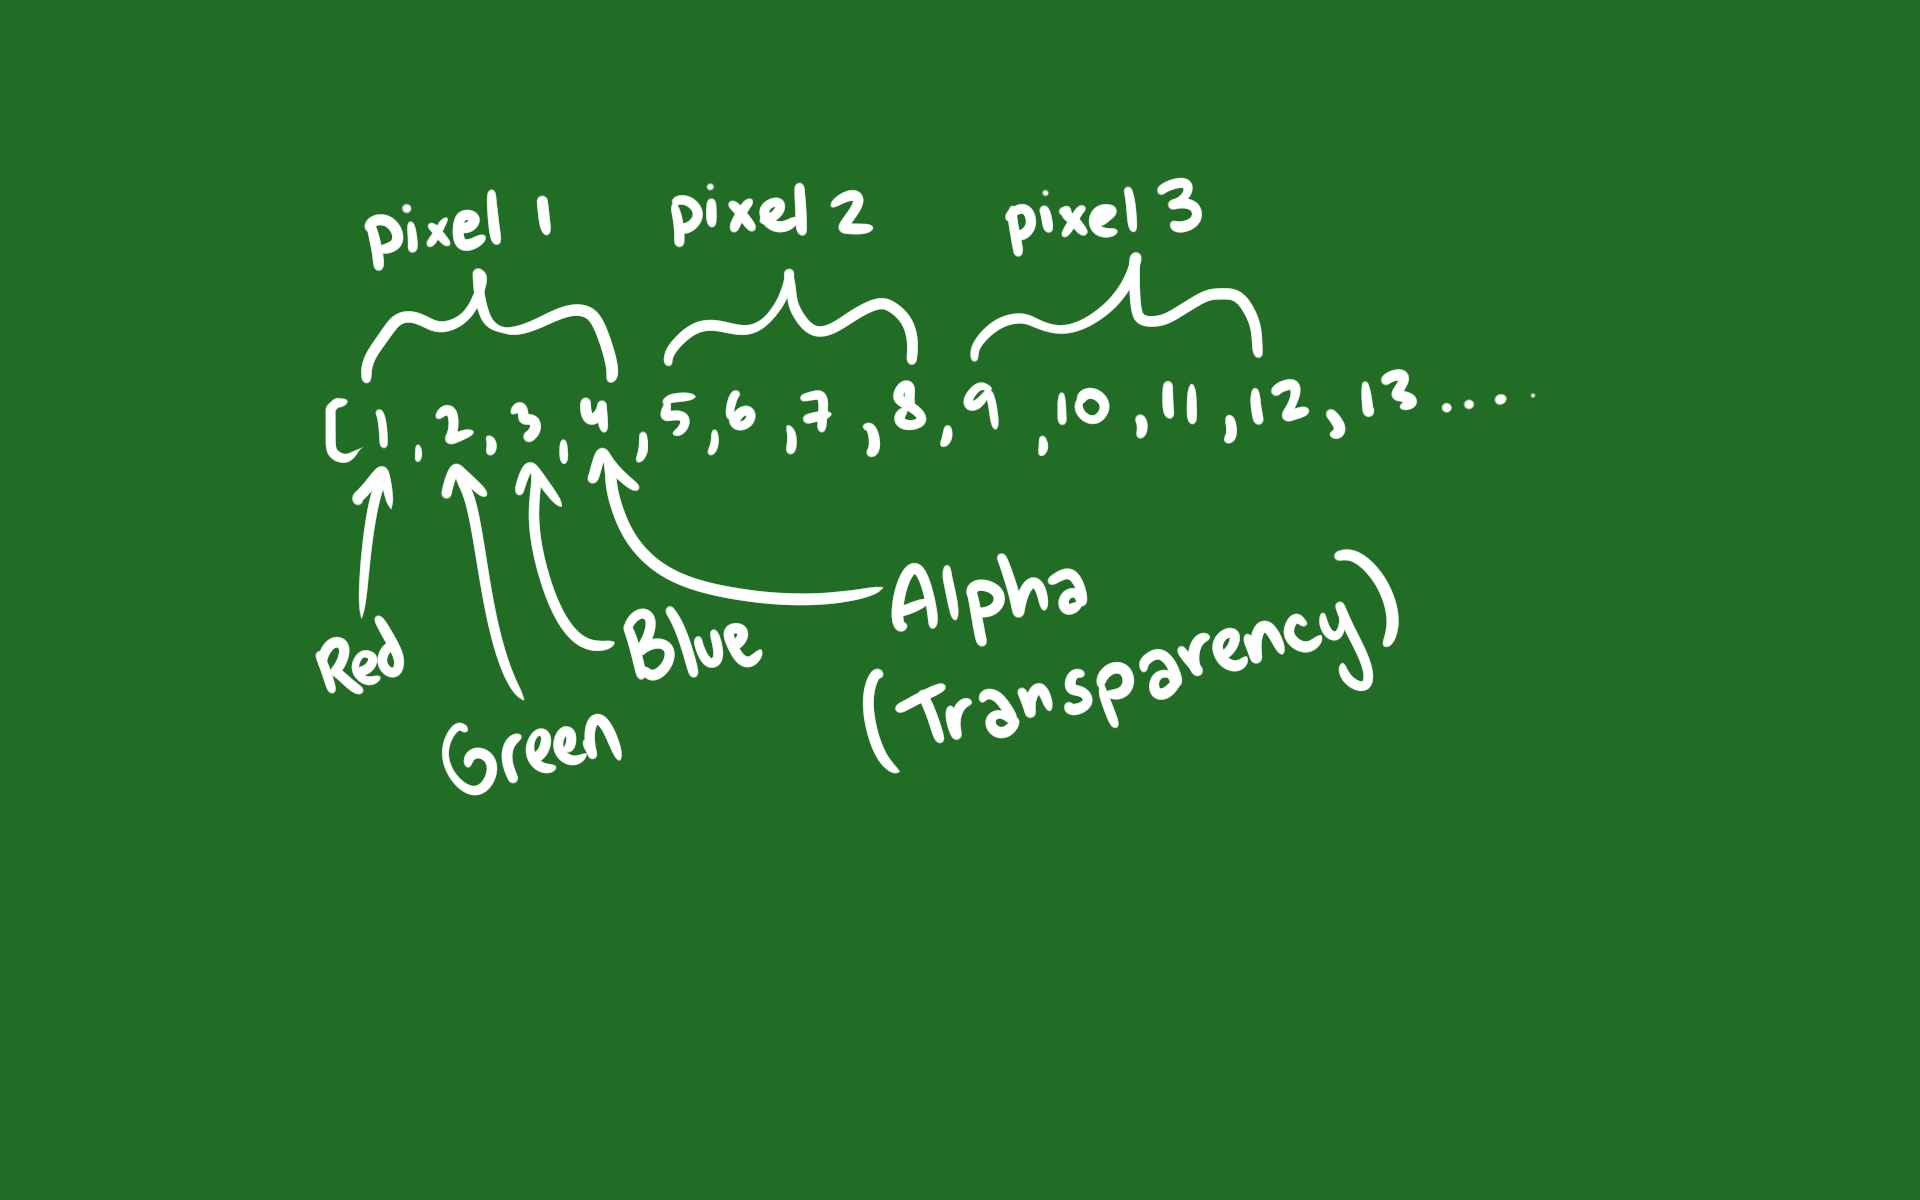 pixel 1 pixel 2 pixel 3
[1,2,3,4,5,6,7,8,9,10,11,12,13....
Red
Green
Blue
Alpha
(Transparency)